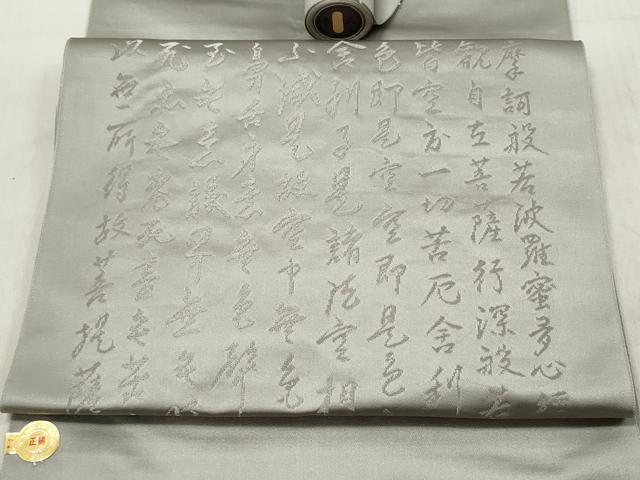 摩訶般若波羅蜜多心経
觀自在菩薩行深般若
皆空度一切苦厄舍利
色即是空空即是色
舍利子是諸法空相
不滅是故空中無色
鼻舌身意無色聲
至無意識界無無
死亦無老死盡無苦
以無所得故菩提薩
正絹